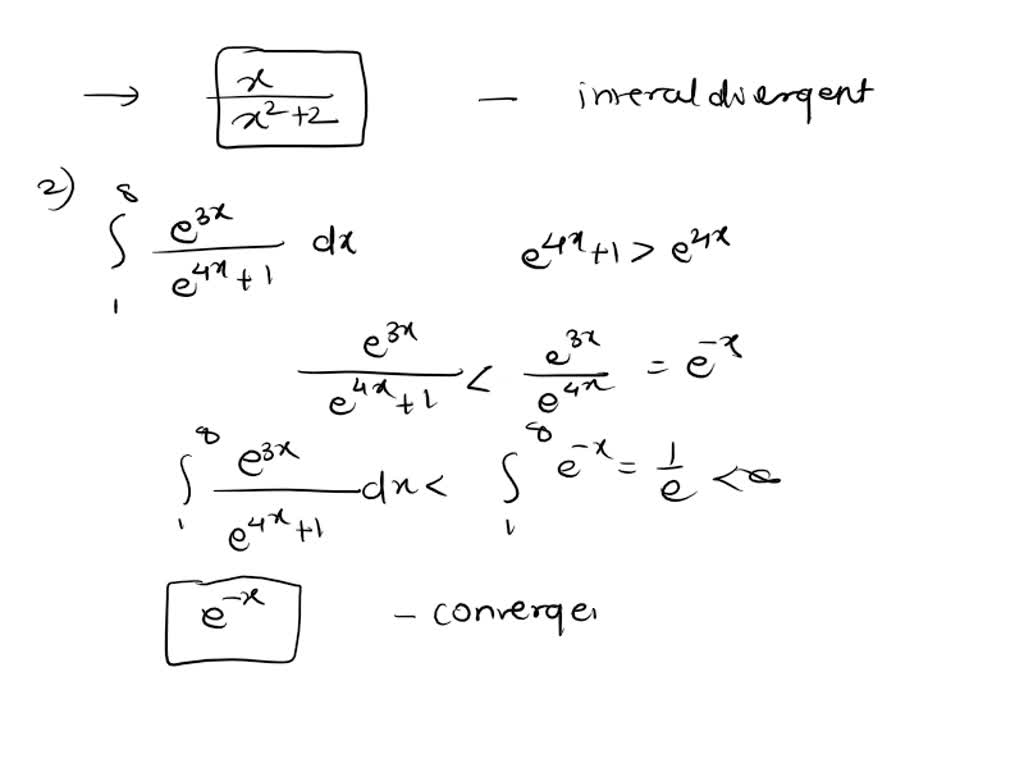 → x/(x²+2) – inreral divergent
2) ∫₁^∞ e^{3x}/(e^{4x}+1) dx e^{4x}+1 > e^{4x}
e^{3x}/(e^{4x}+1) < e^{3x}/e^{4x} = e^{-x}
∫₁^∞ e^{3x}/(e^{4x}+1) dx < ∫₁^∞ e^{-x} = 1/e < ∞
e^{-x} – converge